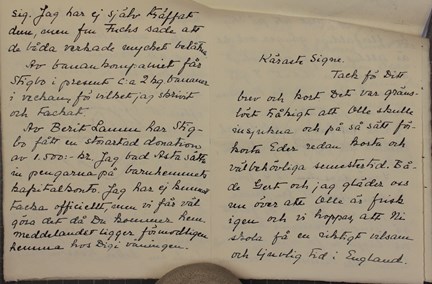 sig. Jag har ej själv träffat
dem, men fru Fuchs sade att
de båda verkade mycket belåtna.
Av banankompaniet får
Stigbo i present c:a 2 kg bananer
i veckan, för vilket jag skrivit
och tackat.
Av Berit Lamm har Stig-
bo fått en storartad donation
av 1.500:- kr. Jag bad Asta sätta
in pengarna på barnhemmets
kapitalkonto. Jag har ej kunnat
tacka officiellt, men vi får väl
göra det då Du kommer hem.
meddelandet ligger förmodligen
hemma hos Digi våningen.
Käraste Signe.
Tack för Ditt
brev och kort Det var gräns-
löst tråkigt att Olle skulle
insjukna och på så sätt för-
korta Eder redan korta och
välbehövliga semestertid. Bå-
de Gert och jag gläder oss
nu över att Olle är frisk
igen och vi hoppas att Ni
skola få en riktigt vilsam
och ljuvlig tid i England.